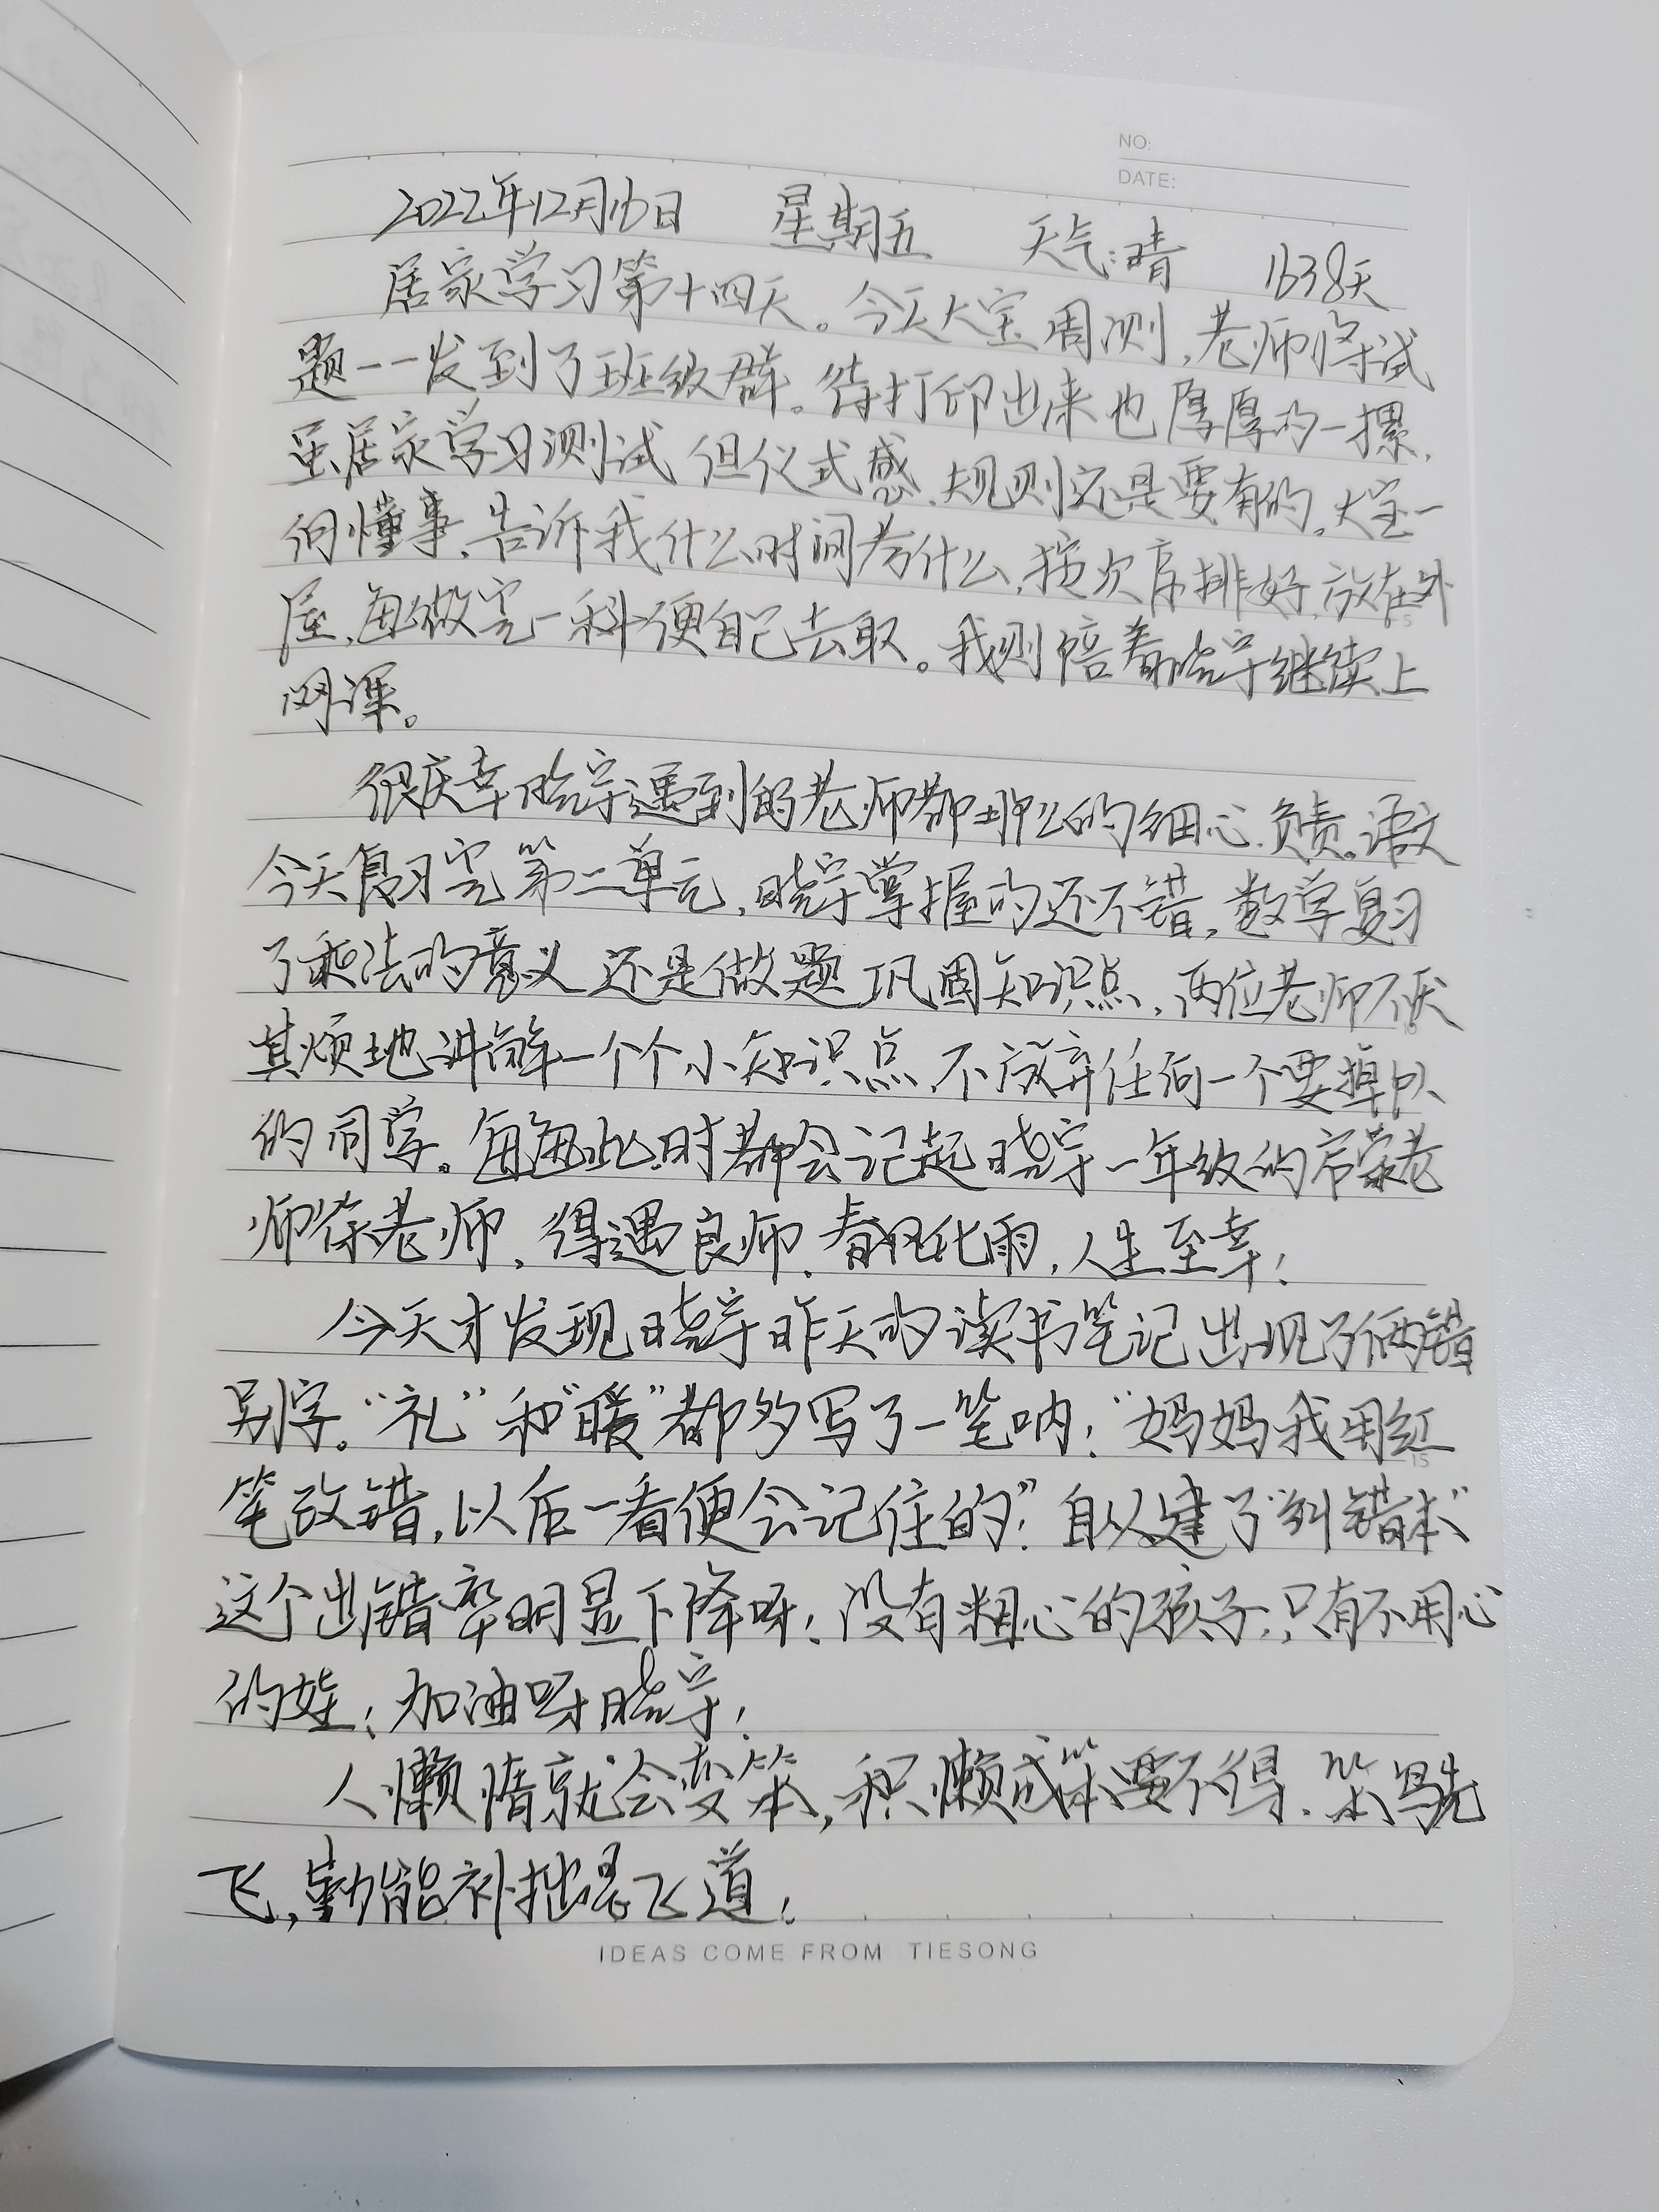 NO:
DATE:
2022年12月16日 星期五 天气:晴 1638天
居家学习第十四天。今天大宝周测,老师将试
题一一发到了班级群。待打印出来也厚厚的一摞,
虽居家学习测试 但仪式感、规则还是要有的,大宝一
向懂事,告诉我什么时间考什么,按次序排好,放在外
屋,每做完一科便自己去取。我则陪着晓宇继续上
网课。
很庆幸晓宇遇到的老师都那么的细心、负责。语文
今天复习完第二单元,晓宇掌握的还不错,数学复习
了乘法的意义 还是做题巩固知识点,两位老师不厌
其烦地讲解一个个小知识点,不放弃任何一个要掉队
的同学。每每此时都会记起晓宇一年级的荣老
师徐老师,得遇良师,春风化雨,人生至幸!
今天才发现晓宇昨天的读书笔记出现了俩错
别字。“礼”和“暖”都多写了一笔呐!“妈妈我用红
笔改错,以后一看便会记住的”!自从建了“纠错本”
这个出错率明显下降呀!没有粗心的孩子,只有不用心
的娃!加油呀晓宇!
人懒惰就会变笨,积懒成笨要不得,笨鸟先
飞,勤能补拙是飞道!
IDEAS COME FROM TIESONG